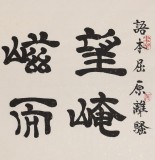 語本屈原離騷
望崦
嵫而